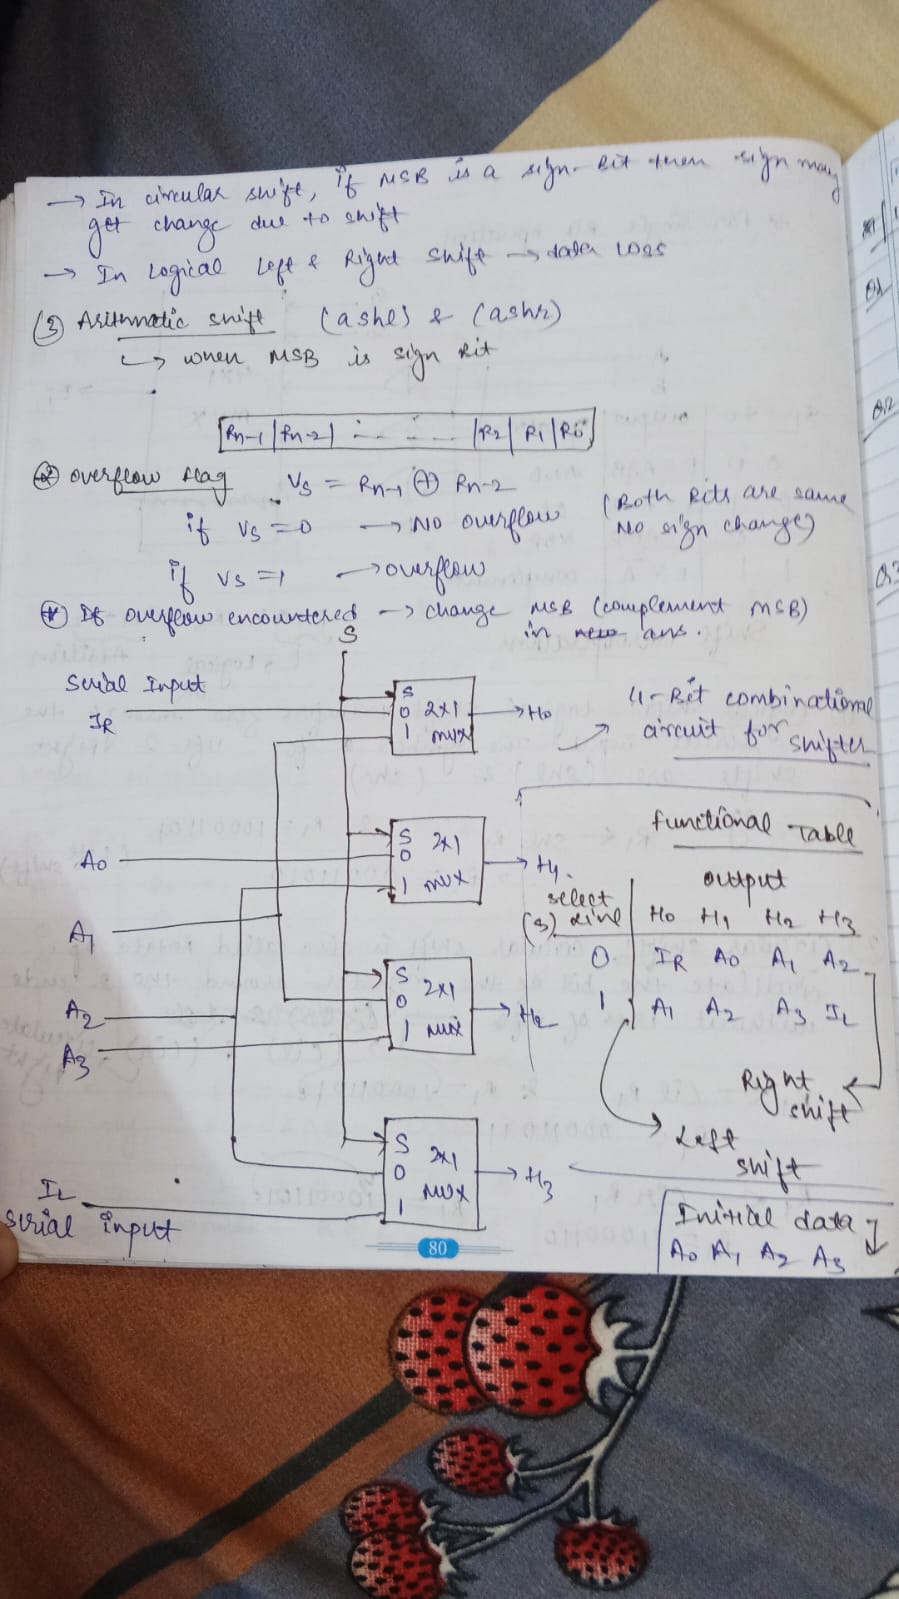 → In circular shift, if MSB is a sign-Bit then sign may
get change due to shift
→ In Logical Left & Right shift → data Loss
(3) Arithmatic shift (ashl) & (ashr)
↳ when MSB is sign Bit
Rn-1 | Rn-2 | ... | R2 | R1 | R0
overflow flag Vs = Rn-1 ⊕ Rn-2
if Vs = 0 → No overflow (Both Bits are same
No sign change)
if Vs = 1 → overflow
If overflow encountered → change MSB (complement MSB)
in ans.
S
Serial Input
IR
S
0 2x1
1 mux
→ H0
4-Bit combinational
circuit for
shifter
A0
S 2x1
0
1 mux
→ H1
A1
A2
A3
S
0 2x1
1 mux
→ H2
IL
Serial input
S
0 2x1
1 mux
→ H3
functional Table
select output
(S) line H0 H1 H2 H3
0 IR A0 A1 A2
1 A1 A2 A3 IL
Right
shift
Left
shift
Initial data
A0 A1 A2 A3
80